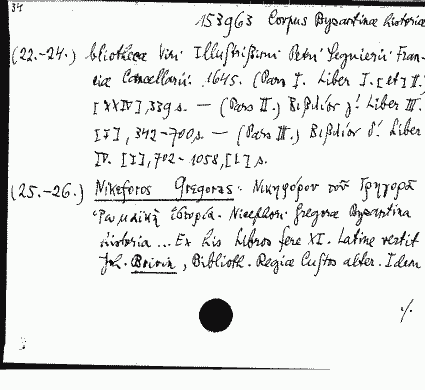 34
153963 Corpus Byzantinae historiae
(22.-24.) bliotheca Viri Illustrissimi Petri Seguierii Fran-
ciae Cancellarii. 1645. (Pars I. Liber I. [et] II.)
[XXIV], 339 s. — (Pars II.) Βιβλίον γ! Liber III.
[I], 342-700 s. — (Pars III.) Βιβλίον δ! Liber
IV. [I], 702-1058, [1] s.
(25.-26.) Nikeforos Gregoras. Νικηφόρου τοῦ Γρηγορᾶ
Ῥωμαϊκὴ ἱστορία. Nicephori Gregorae Byzantina
historia ... Ex his Libros fere XI. Latine vertit
Joh. Boivin, Biblioth. Regiae Custos alter. Idem
./.